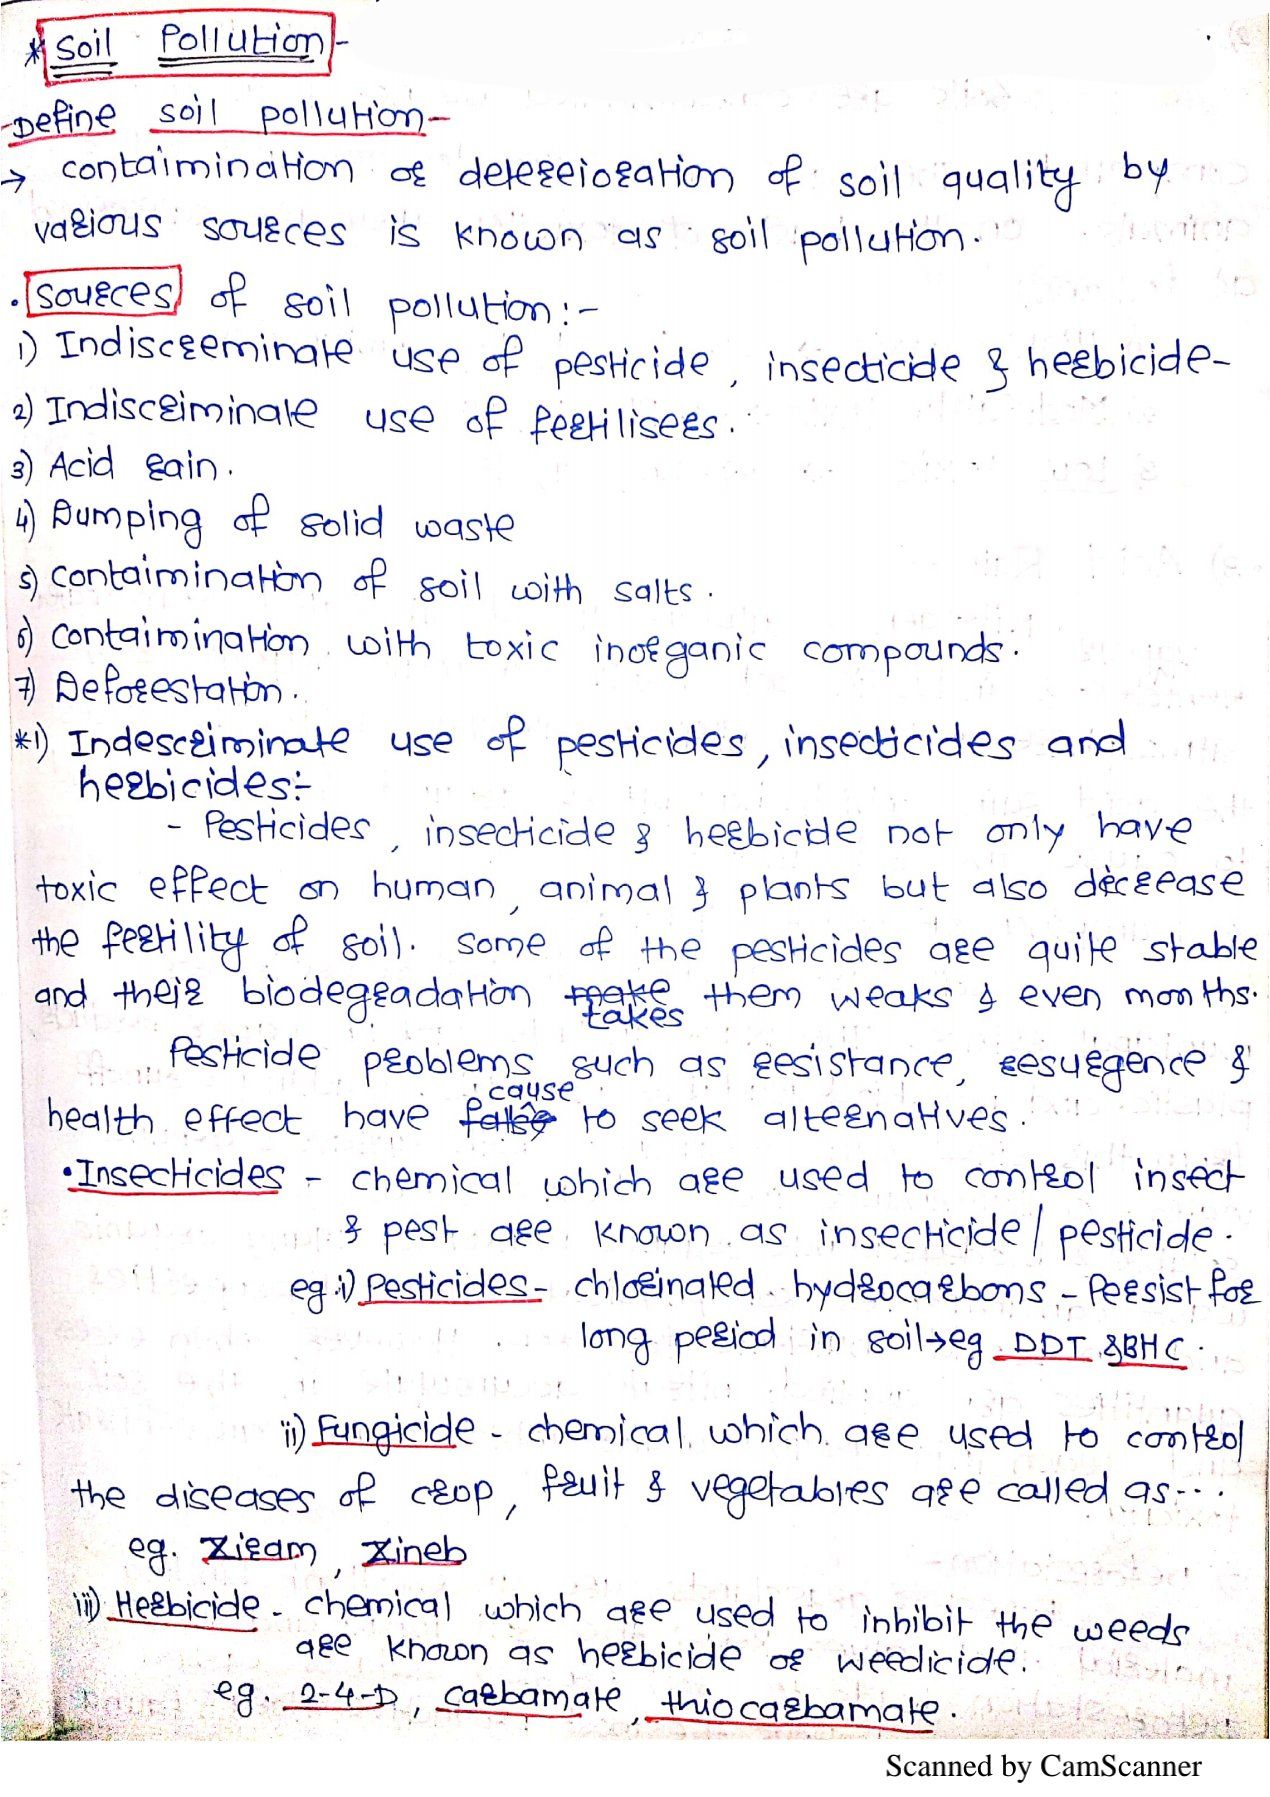 * Soil Pollution -
- Define soil pollution -
→ contaimination or detereioration of soil quality by
various sources is known as soil pollution.
. Sources of soil pollution :-
1) Indiscreeminate use of pesticide, insecticide & herbicide -
2) Indiscriminate use of fertilisers.
3) Acid rain.
4) Dumping of solid waste
5) contaimination of soil with salts.
6) contaimination with toxic inorganic compounds.
7) Deforestation.
*1) Indescriminate use of pesticides, insecticides and
herbicides:-
- Pesticides, insecticide & herbicide not only have
toxic effect on human, animal & plants but also decrease
the fertility of soil. Some of the pesticides are quite stable
and their biodegradation make takes them weaks & even months.
Pesticide problems such as resistance, resurgence &
health effect have cause to seek alternatives.
• Insecticides - chemical which are used to control insect
& pest are known as insecticide / pesticide.
eg. i) Pesticides - chlorinated hydrocarbons - Persist for
long period in soil → eg DDT & BHC.
ii) Fungicide - chemical which are used to control
the diseases of crop, fruit & vegetables are called as...
eg. Ziram, Zineb
iii) Herbicide - chemical which are used to inhibit the weeds
are known as herbicide or weedicide.
eg. 2-4-D, carbamate, thiocarbamate.
Scanned by CamScanner